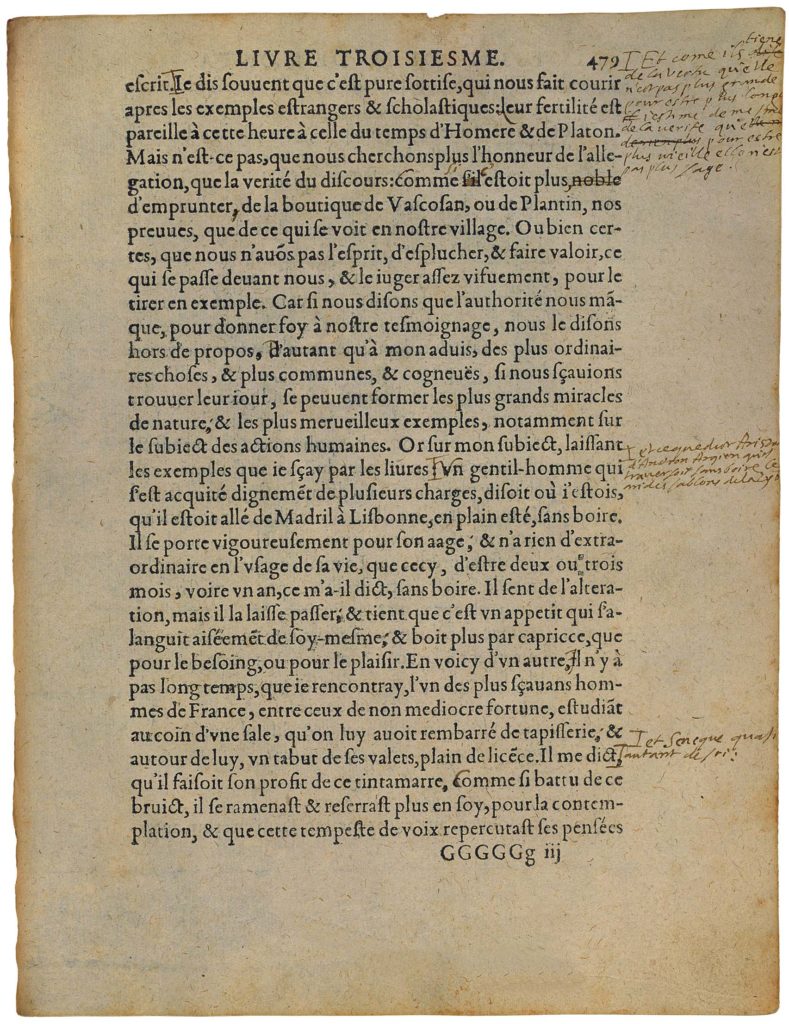 LIVRE TROISIESME. 479
escrit. Ie dis souuent que c'est pure sottise, qui nous fait courir
apres les exemples estrangers & scholastiques: leur fertilité est
pareille à cette heure à celle du temps d'Homere & de Platon.
Mais n'est-ce pas, que nous cherchons plus l'honneur de l'alle-
gation, que la verité du discours: comme si c'estoit plus, noble
d'emprunter, de la boutique de Vascosan, ou de Plantin, nos
preuues, que de ce qui se voit en nostre village. Ou bien cer-
tes, que nous n'auõs pas l'esprit, d'esplucher, & faire valoir, ce
qui se passe deuant nous, & le iuger assez vifuement, pour le
tirer en exemple. Car si nous disons que l'authorité nous mã-
que, pour donner foy à nostre tesmoignage, nous le disons
hors de propos, d'autant qu'à mon aduis, des plus ordinai-
res choses, & plus communes, & cogneuës, si nous sçauions
trouuer leur iour, se peuuent former les plus grands miracles
de nature, & les plus merueilleux exemples, notamment sur
le subiect des actions humaines. Or sur mon subiect, laissant
les exemples que ie sçay par les liures Vn gentil-homme qui
s'est acquité dignemẽt de plusieurs charges, disoit où i'estois,
qu'il estoit allé de Madril à Lisbonne, en plain esté, sans boire.
Il se porte vigoureusement pour son aage, & n'a rien d'extra-
ordinaire en l'vsage de sa vie, que cecy, d'estre deux ou trois
mois, voire vn an, ce m'a-il dict, sans boire. Il sent de l'altera-
tion, mais il la laisse passer, & tient que c'est vn appetit qui s'a-
languit aiséemẽt de soy-mesme, & boit plus par capricce, que
pour le besoing, ou pour le plaisir. En voicy d'vn autre, Il n'y à
pas long temps, que ie rencontray, l'vn des plus sçauans hom-
mes de France, entre ceux de non mediocre fortune, estudiãt
au coin d'vne sale, qu'on luy auoit rembarré de tapisserie, &
autour de luy, vn tabut de ses valets, plain de licẽce. Il me dict,
qu'il faisoit son profit de ce tintamarre, Comme si battu de ce
bruict, il se ramenast & reserrast plus en soy, pour la contem-
plation, & que cette tempeste de voix repercutast ses pensées
GGGGGg iij
Et come ils tiene
de la vertu qu'elle
n'est pas plus grande
pour estre plus longue
i'estime de mesme
de la verité que
pour estre
plus vieille ell' n'est
pas plus sage.
et ce que dict Aris
d'Andron Argien qu'il
trauersoit sans boire
arides sablons de la Ly
et Seneque quasi
autant de soi: